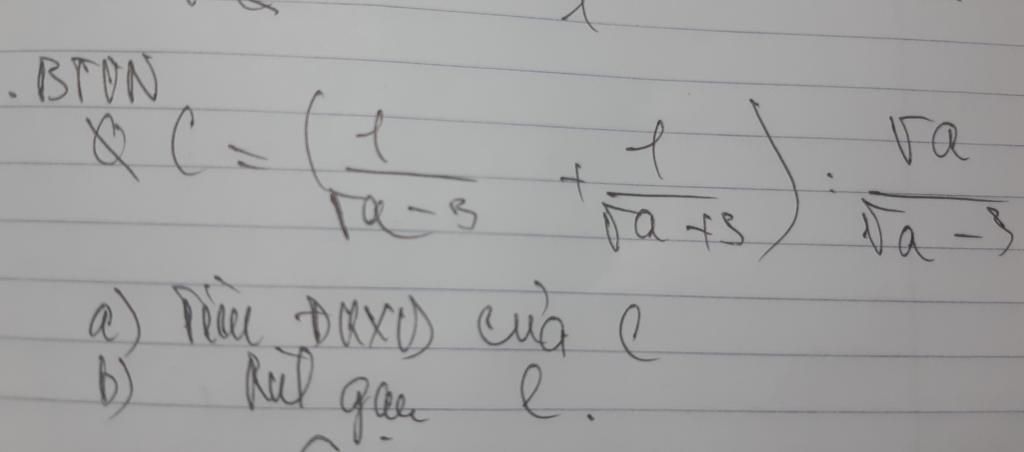 . BTVN
C = (1/(√a - 3) + 1/(√a + 3)) : √a/(√a - 3)
a) Tìm ĐKXĐ của C
b) Rút gọn C.